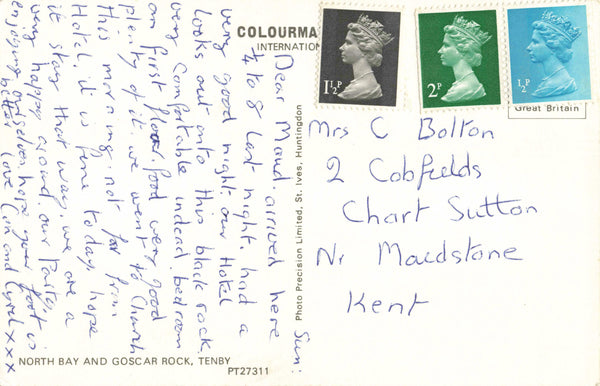 COLOURMA
INTERNATION
1½P
2P
½P
Great Britain
Mrs C Bolton
2 Cobfields
Chart Sutton
Nr Maidstone
Kent
Sun:
Dear Maud. arrived here
¼ to 8 last night. had a
very good night. our Hotel
looks out onto this black rock
very comfortable indeed. bedroom
on first floor. food very good
plenty of it. we went to Church
this morning. not far from
Hotel. it is fine today, hope
it stay that way. we are a
very happy crowd. our Party.
enjoying ourselves. hope your foot is
better. love and Cyril xxx
Photo Precision Limited, St. Ives, Huntingdon
NORTH BAY AND GOSCAR ROCK, TENBY
PT27311